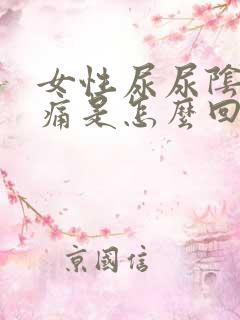 女性尿尿陰
痛是怎麼回
京國信